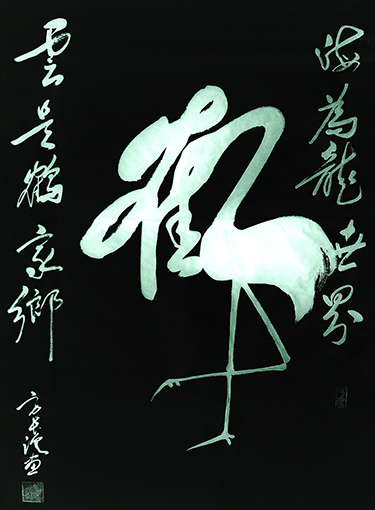 海為龍世界
鶴
雲是鶴家鄉